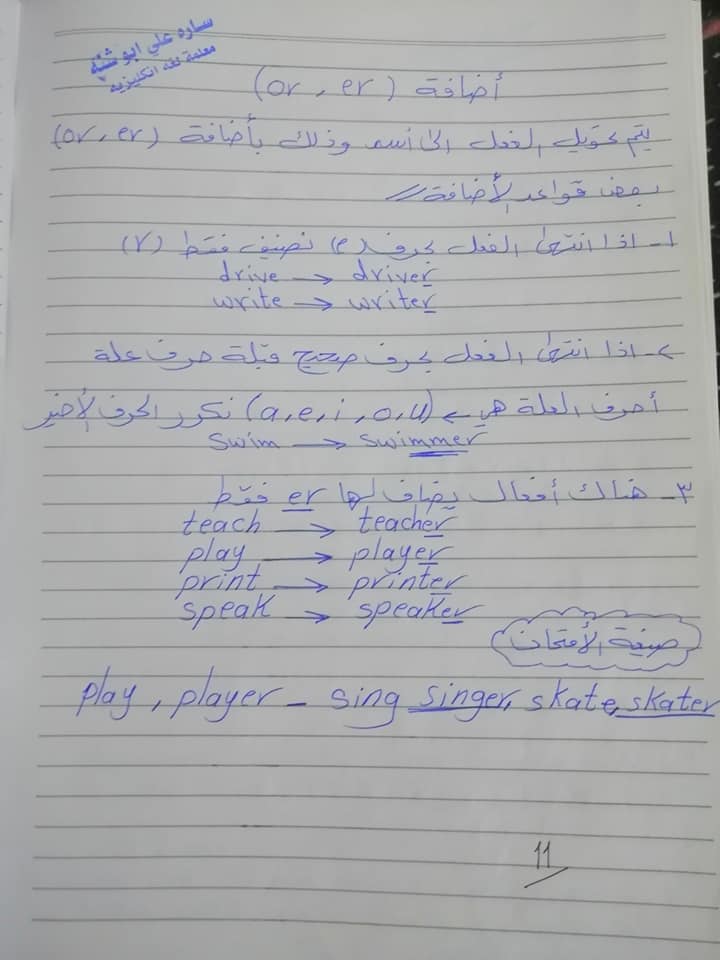 ساره علي ابو شنه
معلمة لغه انكليزيه
أضافة (or, er)
يتم تحويل الفعل الى أسم وذلك بأضافة (or, er)
بعض قواعد الأضافة //
1- اذا انتهى الفعل بحرف (e) نضيف فقط (r)
drive → driver
write → writer
2- اذا انتهى الفعل بحرف صحيح قبلة حرف علة
أحرف العلة هي ← (a, e, i, o, u) نكرر الحرف الأخير
swim → swimmer
٣- هناك أفعال يضاف لها er فقط
teach → teacher
play → player
print → printer
speak → speaker
صيغة الأمتحان
play, player - sing singer, skate, skater
11